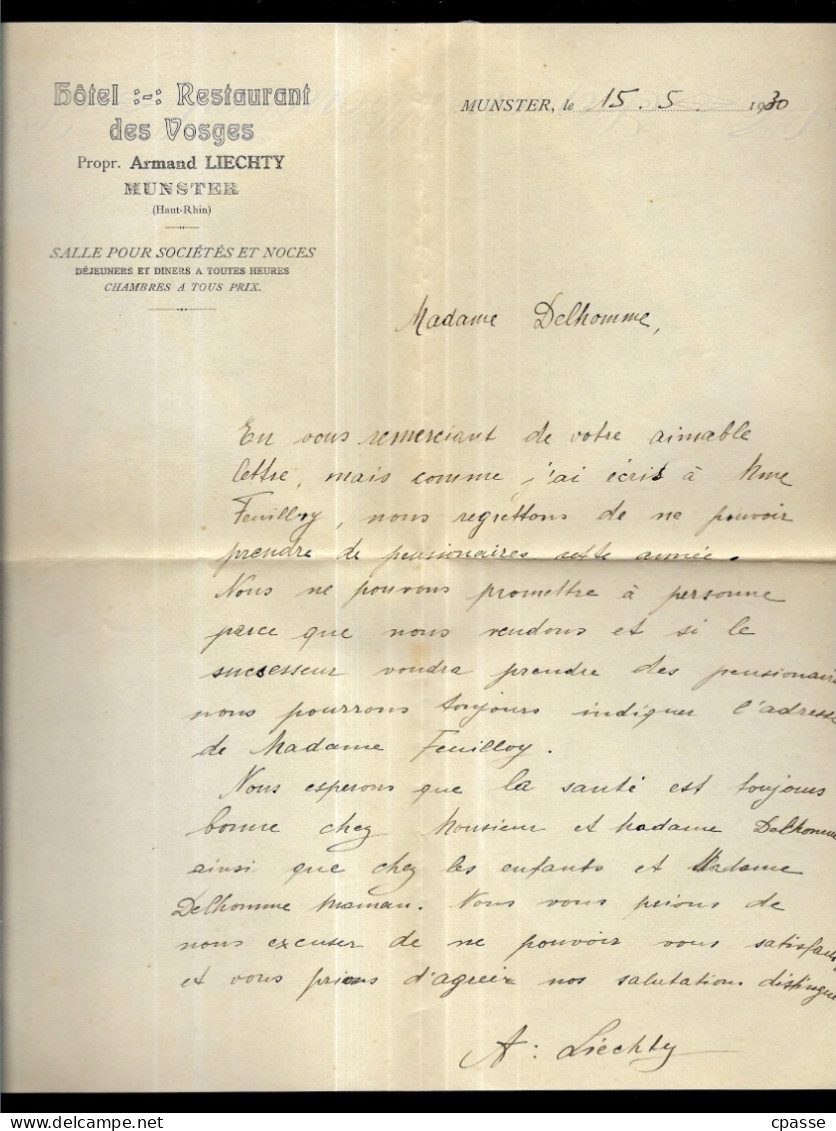 Hôtel :-: Restaurant
des Vosges
Propr. Armand LIECHTY
MUNSTER
(Haut-Rhin)
SALLE POUR SOCIÉTÉS ET NOCES
DÉJEUNERS ET DINERS A TOUTES HEURES
CHAMBRES A TOUS PRIX.
MUNSTER, le 15. 5. 1930
Madame Delhomme,
En vous remerciant de votre aimable
lettre, mais comme j'ai écris à Mme
Feuilloy, nous regrettons de ne pouvoir
prendre de pensionaires cette année.
Nous ne pouvons promettre à personne
parce que nous vendons et si le
successeur voudra prendre des pensionaire
nous pourrons toujours indiquer l'adresse
de Madame Feuilloy.
Nous esperons que la santé est toujours
bonne chez Monsieur et Madame Delhomme
ainsi que chez les enfants et Madame
Delhomme Maman. Nous vous prions de
nous excuser de ne pouvoir vous satisfaire
et vous prions d'agréer nos salutations distingué
A. Liechty
cpasse